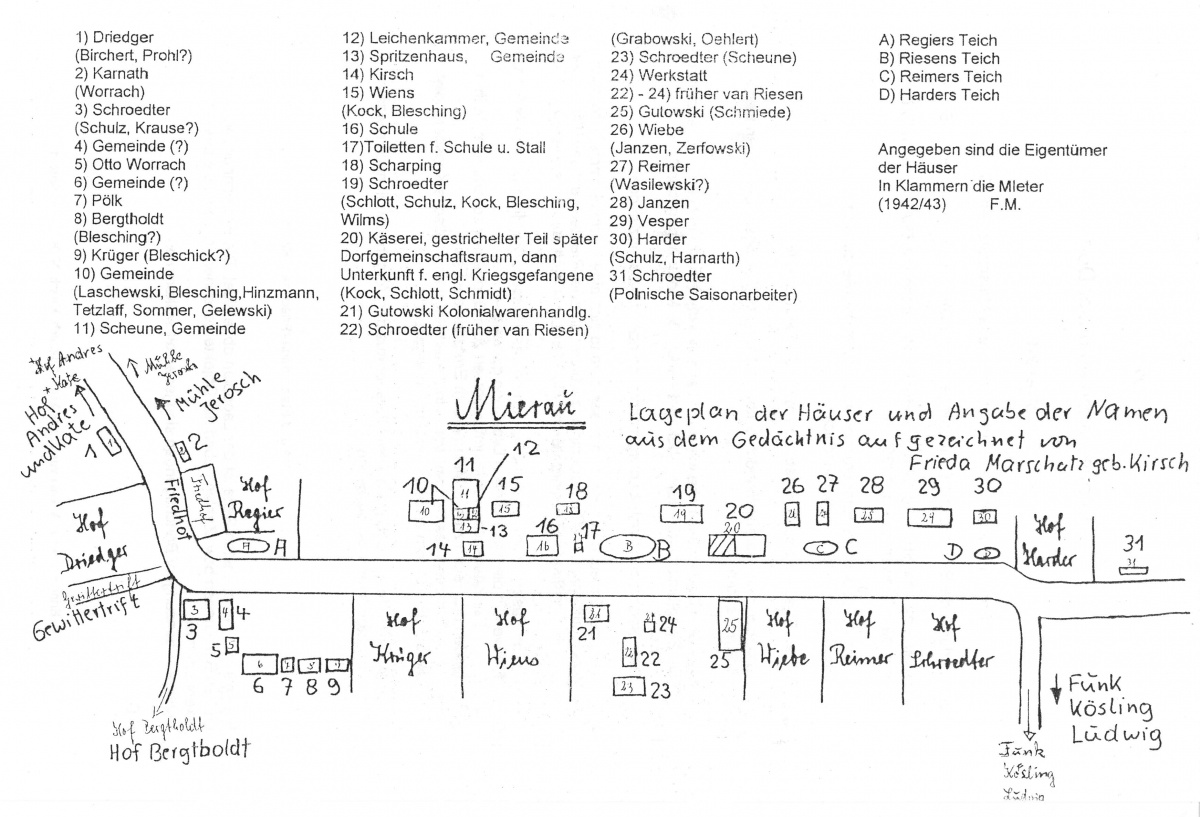 1) Driedger
(Birchert, Prohl?)
2) Karnath
(Worrach)
3) Schroedter
(Schulz, Krause?)
4) Gemeinde (?)
5) Otto Worrach
6) Gemeinde (?)
7) Pölk
8) Bergtholdt
(Blesching?)
9) Krüger (Bleschick?)
10) Gemeinde
(Laschewski, Blesching,Hinzmann,
Tetzlaff, Sommer, Gelewski)
11) Scheune, Gemeinde
12) Leichenkammer, Gemeinde
13) Spritzenhaus, Gemeinde
14) Kirsch
15) Wiens
(Kock, Blesching)
16) Schule
17)Toiletten f. Schule u. Stall
18) Scharping
19) Schroedter
(Schlott, Schulz, Kock, Blesching,
Wilms)
20) Käserei, gestrichelter Teil später
Dorfgemeinschaftsraum, dann
Unterkunft f. engl. Kriegsgefangene
(Kock, Schlott, Schmidt)
21) Gutowski Kolonialwarenhandlg.
22) Schroedter (früher van Riesen)
(Grabowski, Oehlert)
23) Schroedter (Scheune)
24) Werkstatt
22) - 24) früher van Riesen
25) Gutowski (Schmiede)
26) Wiebe
(Janzen, Zerfowski)
27) Reimer
(Wasilewski?)
28) Janzen
29) Vesper
30) Harder
(Schulz, Harnarth)
31 Schroedter
(Polnische Saisonarbeiter)
A) Regiers Teich
B) Riesens Teich
C) Reimers Teich
D) Harders Teich
Angegeben sind die Eigentümer
der Häuser
In Klammern die Mieter
(1942/43) F.M.
Mieraŭ
Lageplan der Häuser und Angabe der Namen
aus dem Gedächtnis aufgezeichnet von
Frieda Marschatz geb. Kirsch
Hof Andres
+ Kate
Hof
Andres
und Kate
Mühle
Jerosch
Mühle
Jerosch
1
2
Friedhof
Friedhof
Hof
Regier
A A
Hof
Driedger
Gewittertrift
Gewittertrift
10 10
11 11
12
13 13
14 14
15 15
16 16
17
18 18
19 19
20 20
B B
26
27
28 28
29 29
30 30
C C
D D
Hof
Harder
31 31
3 3
4 4
5 5
6 6
7 7
8 8
9 9
Hof
Krüger
Hof
Wiens
21 21
22 22
23 23
24
25 25
Hof
Wiebe
Hof
Reimer
Hof
Schroedter
Hof Bergtholdt
Hof Bergtboldt
Fŭnk
Kösling
Lŭdwig
Fŭnk
Kösling
Lŭdwig